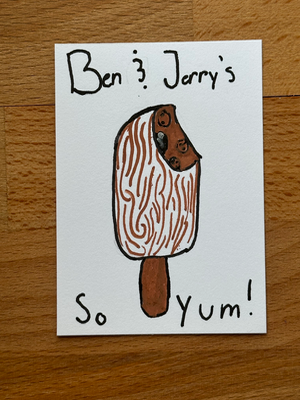 Ben & Jerry's
So Yum!